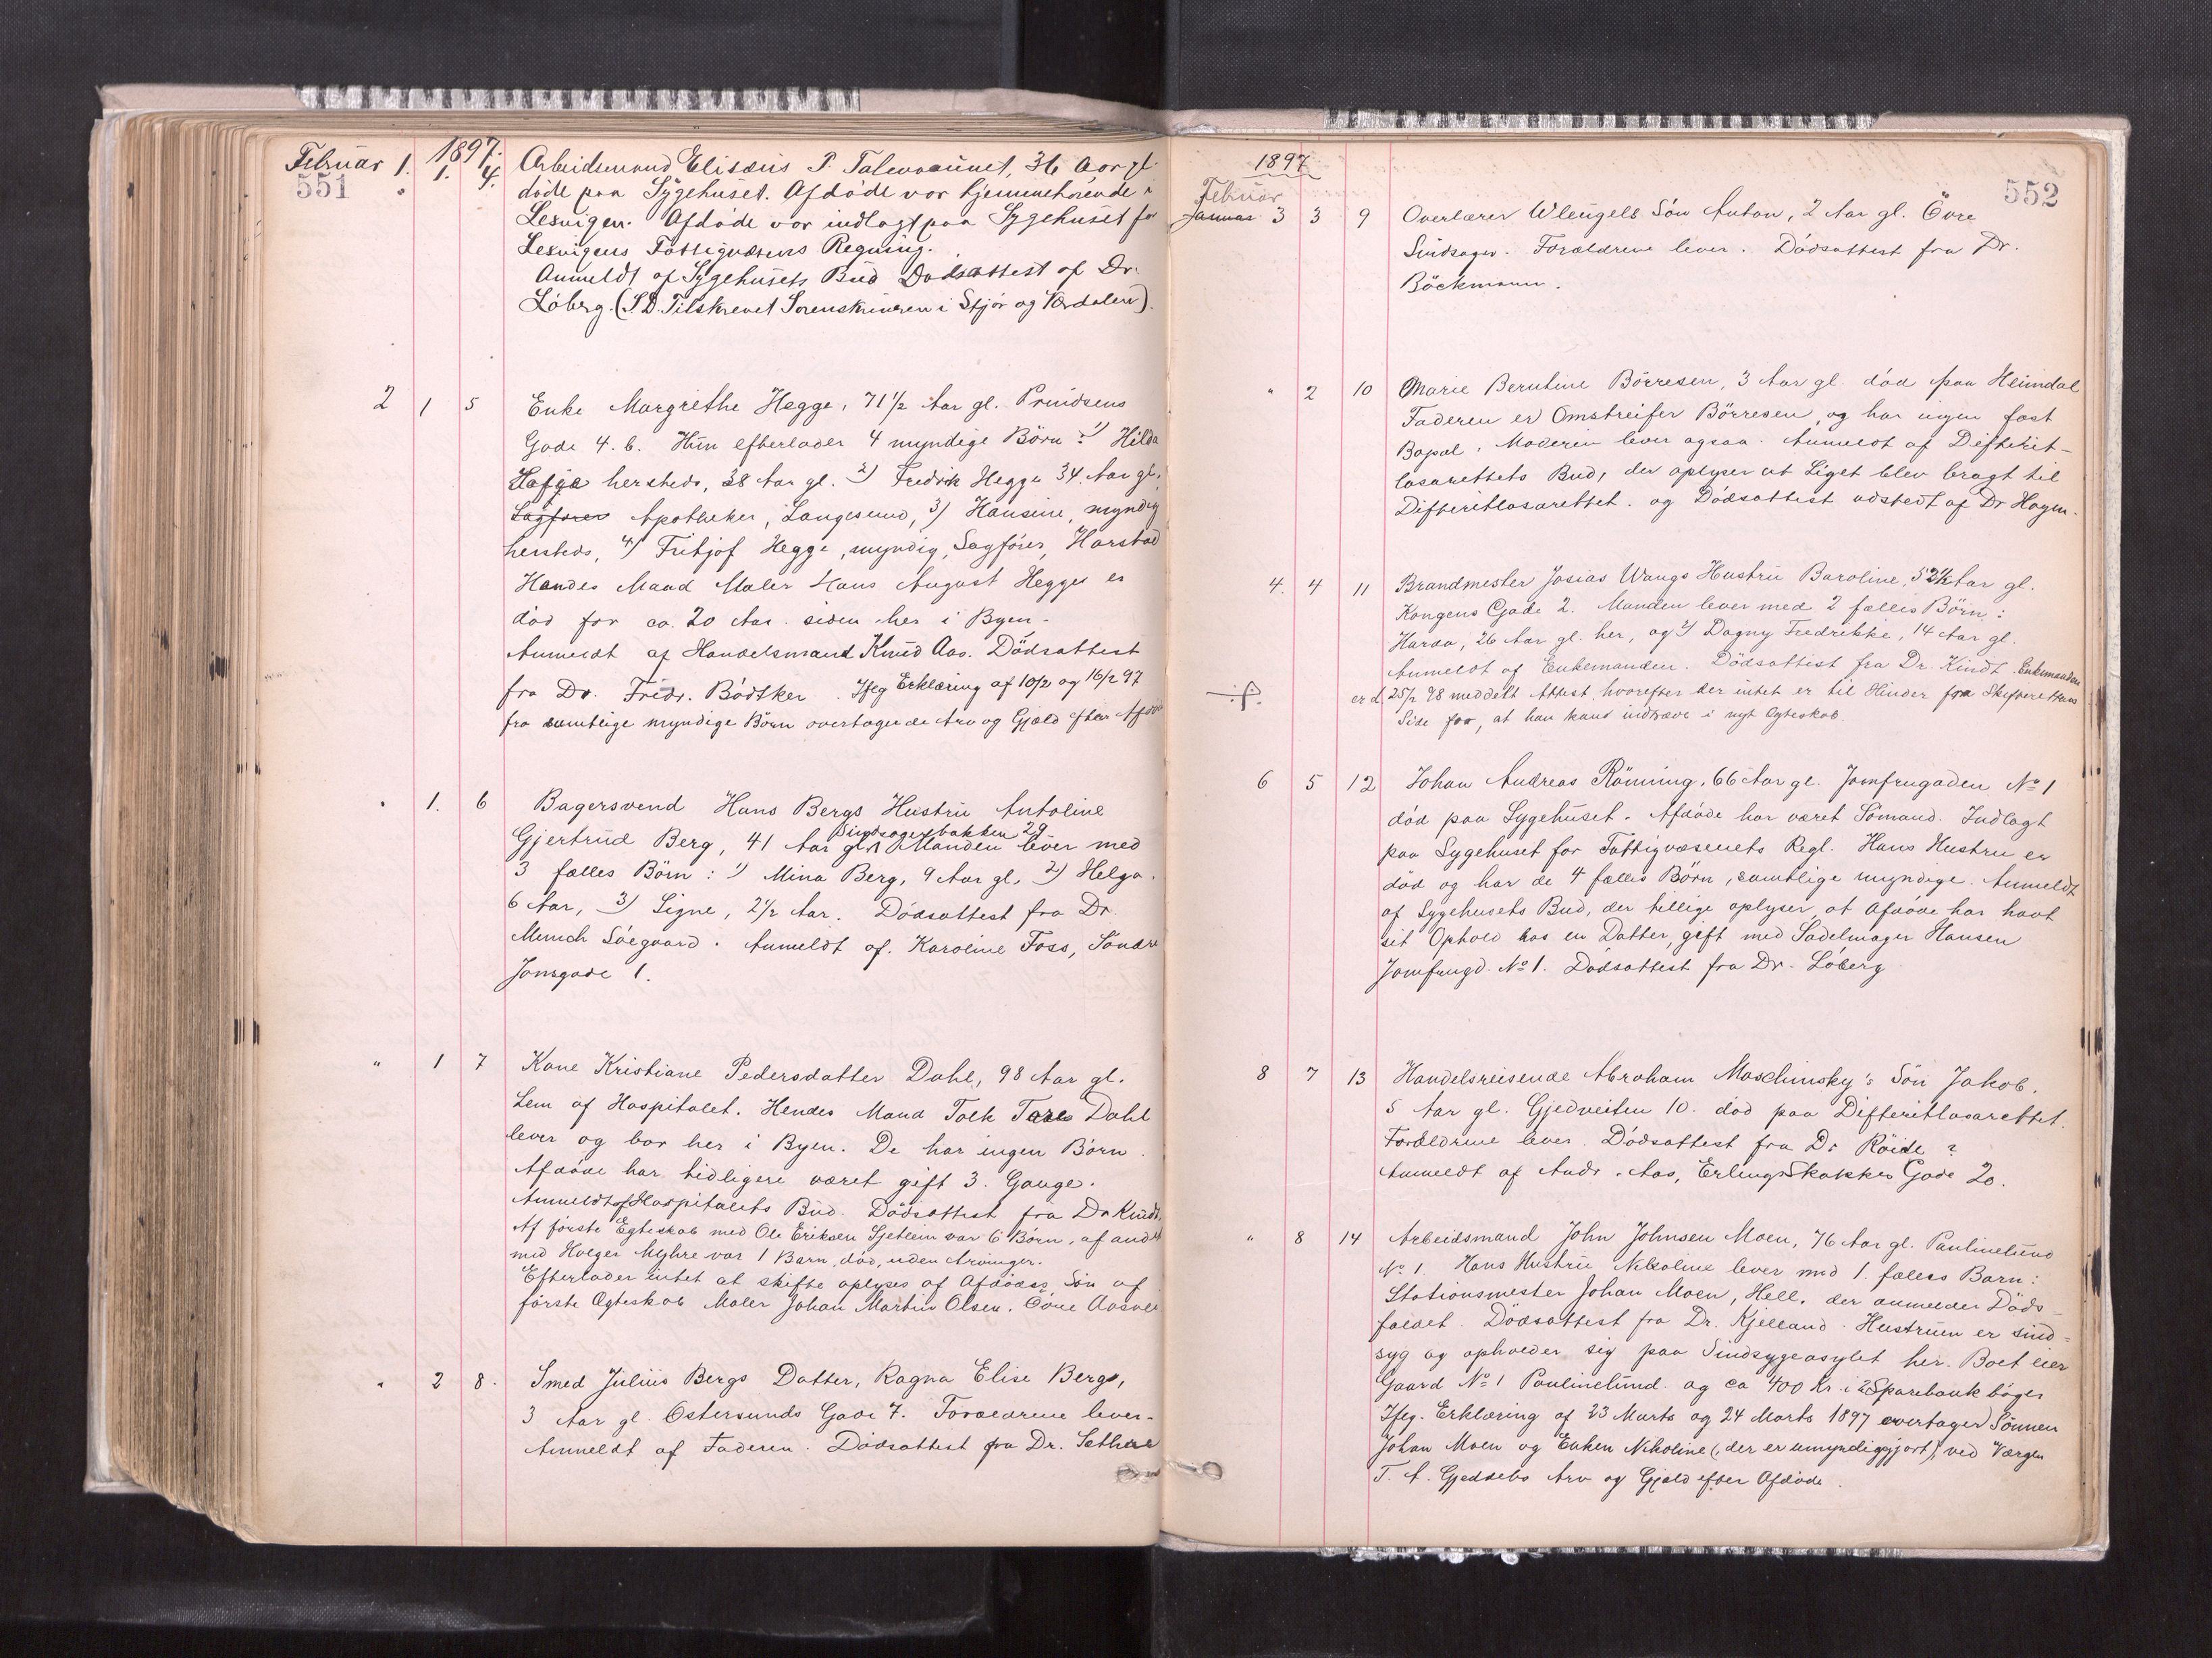 1897.
Februar 1. 1. 4. Arbeidsmand Elisæus P. 36 Aar gl.
551
døde paa Sygehuset. Afdøde var hjemmehørende i
Lexvigen. Afdøde var indlagt paa Sygehuset for
Lexvigens Fattigvæsens Regning.
Anmeldt af Sygehusets Bud Dødsattest af Dr.
Löberg. (S.D. Tilskrevet Sorenskriveren i Stjør og Værdalen).
2 1 5 Enke Margrethe Hegge, 71 1/2 Aar gl. Prindsens
Gade 4. b. Hun efterlader 4 myndige Börn: 1) Hilda
hersteds, 38 Aar gl. 2) Fredrik Hegge 34 Aar gl.
Sagförer Apotheker, Langesund, 3) Hansine, myndig
hersteds, 4) Fritjof Hegge, myndig, Sagförer, Harstad
Hendes Mand Maler Hans August Hegge er
död for ca. 20 Aar siden her i Byen.
Anmeldt af Handelsmand Knud Aas. Dödsattest
fra Dr. Fredr. Bödtker. Ifög Erklæring af 10/2 og 16/2 97
fra samtlige myndige Börn overtager de Arv og Gjæld efter Afdöde
" 1. 6 Bagersvend Hans Bergs Hustru Antoline
Sindsagerbakken 29
Gjertrud Berg, 41 Aar gl. Manden lever med
3 fælles Börn: 1) Mina Berg, 9 Aar gl, 2) Helga.
6 Aar, 3) Signe, 2 1/2 Aar. Dödsattest fra Dr.
Münch Söegaard. Anmeldt af. Karoline Foss, Søndre
Jonsgade 1.
" 1 7 Kone Kristiane Pedersdatter Dahl, 98 Aar gl.
Lem af Hospitalet. Hendes Mand Tolk Dahl
lever og bor her i Byen. De har ingen Börn.
Afdöde har tidligere været gift 3. Gange.
Anmeldt af Hospitalets Bud. Dödsattest fra Dr Kindt.
Af förste Egteskab med Ole Eriksen Sjetlein var 6 Börn, af andet
med Holger Myhre var 1 Barn, död, uden Arvinger.
Efterlader intet at skifte oplyses af Afdödes Sön af
förste Ægteskab Maler Johan Martin Olsen. Övre
" 2 8. Smed Julius Bergs Datter, Ragna Elise Berg,
3 Aar gl. Ostersunds Gade 7. Forældrene lever.
Anmeldt af Faderen. Dödsattest fra Dr. Sethere
1897
552
Februar
Januar 3 3 9 Overlærer Wleugels Sön Anton, 2 Aar gl. Övre
Sindsager. Forældrene lever. Dödsattest fra Dr.
Böckmann.
" 2 10 Marie Berntine Börresen, 3 Aar gl. död paa Heimdal
Faderen er Omstreifer Börresen, og har ingen fast
Bopæl. Moderen lever ogsaa. Anmeldt af Difterit-
lasarettets Bud, der oplyser at Liget blev bragt til
Difteritlasarettet. og Dödsattest udstedt af Dr Hagen.
4. 4 11 Brandmester Josias Wangs Hustru Baroline, 52 1/2 Aar gl.
Kongens Gade 2. Manden lever med 2 fælles Börn:
Harda, 26 Aar gl. her, og 2) Dagny Fredrikke, 14 Aar gl.
Anmeldt af Enkemanden. Dödsattest fra Dr. Kindt. Enkemanden
er d. 25/2 98 meddelt Attest, hvorefter der intet er til Hinder fra Skifterettens
Side for, at han kand indtræde i nyt Ægteskab.
6 5 12 Johan Andreas Rönning, 66 Aar gl. Jomfrugaden No 1
död paa Sygehuset. Afdöde har været Sömand. Indlagt
paa Sygehuset for Fattigvæsenets Regl. Hans Hustru er
död og har de 4 fælles Börn, samtlige myndige. Anmeldt
af Sygehusets Bud, der tillige oplyser, at Afdöde har havt
sit Ophold hos en Datter, gift med Sadelmager Hansen
Jomfrugd. No 1. Dödsattest fra Dr. Löberg
8 7 13 Handelsreisende Abraham Maschinsky's Sön Jakob.
5 Aar gl. Gjedveiten 10. död paa Difteritlasarettet.
Forældrene lever. Dödsattest fra Dr Röide ?
Anmeldt af Andr. Aas, Erling Skakkes Gade 20.
" 8 14 Arbeidsmand John Johnsen Moen, 76 Aar gl. Paulinelund
No 1. Hans Hustru Nikoline lever med 1. fælles Barn:
Stationsmester Johan Moen, Hell. der anmelder Döds-
faldet. Dödsattest fra Dr. Kjelland. Hustruen er sind=
syg og opholder sig paa Sindsygeasylet her. Boet eier
Gaard No 1 Paulinelund og ca 400 Kr. i 2 Sparebankböger
Ifög. Erklæring af 23 Marts og 24 Marts 1897 overtager Sönnen
Johan Moen og Enken Nikoline (der er umyndiggjort), ved Værgen
T. A. Gjedsebo Arv og Gjæld efter Afdöde.